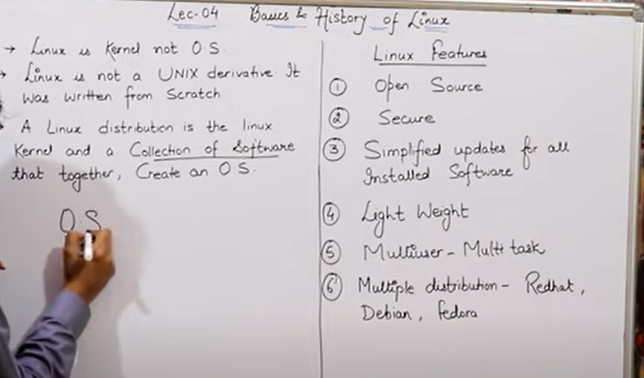 Lec-04 Basics & History of Linux
→ Linux is Kernel not O S.
→ Linux is not a UNIX derivative. It
was written from Scratch
A Linux distribution is the linux
Kernel and a Collection of Software
that together, Create an O S.
O.S
Linux Features
① Open Source
② Secure
③ Simplified updates for all
Installed Software
④ Light Weight
⑤ Multiuser - Multi task
⑥ Multiple distribution - Redhat,
Debian, fedora